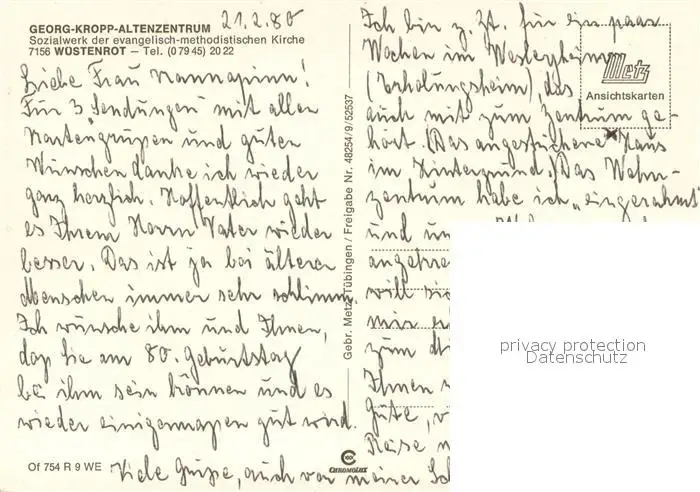 21.2.80
GEORG-KROPP-ALTENZENTRUM
Sozialwerk der evangelisch-methodistischen Kirche
7156 WÜSTENROT – Tel. (0 79 45) 20 22
Liebe Frau Nannapinn!
Für 3 „Sendungen" mit allen
Kartengrüßen und guten
Wünschen danke ich wieder
ganz herzlich. Hoffentlich geht
es Ihrem Herrn Vater wieder
besser. Das ist ja bei älteren
Menschen immer sehr schlimm.
Ich wünsche ihm und Ihnen,
daß Sie am 80. Geburtstag
bei ihm sein können und es
wieder einigermaßen gut wird.
Of 754 R 9 WE
Viele Grüße, auch von meiner Sch
Gebr. Metz Tübingen / Freigabe Nr. 48254/9/52537
CHROMOLUX
Ich bin z. Zt. für ein paar
Wochen im Wesleyheim
(Erholungsheim) das
auch mit zum Zentrum ge-
hört. (Das angestrichene Haus
im Hintergrund.) Das Wohn-
zentrum habe ich „eingerahmt"
und
will
mir
zum
Ihnen
Güte,
Reise
Metz
Ansichtskarten
privacy protection
Datenschutz